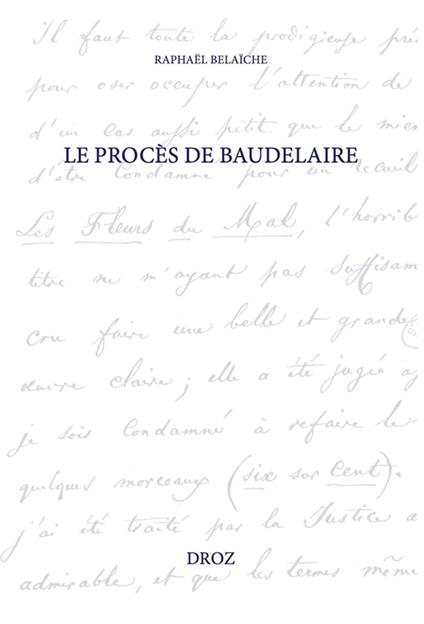 Il faut toute la prodigieuse pré
RAPHAËL BELAÏCHE
pour oser occuper l'attention de
d'un cas aussi petit que le mien
LE PROCÈS DE BAUDELAIRE
d'être condamné pour un recueil
Les Fleurs du Mal, l'horrib
titre ne m'ayant pas suffisam
cru faire une belle et grande
œuvre claire ; elle a été jugée
je suis condamné à refaire le
quelques morceaux (six sur Cent).
j'ai été traité par la Justice a
DROZ
admirable, et que les termes même